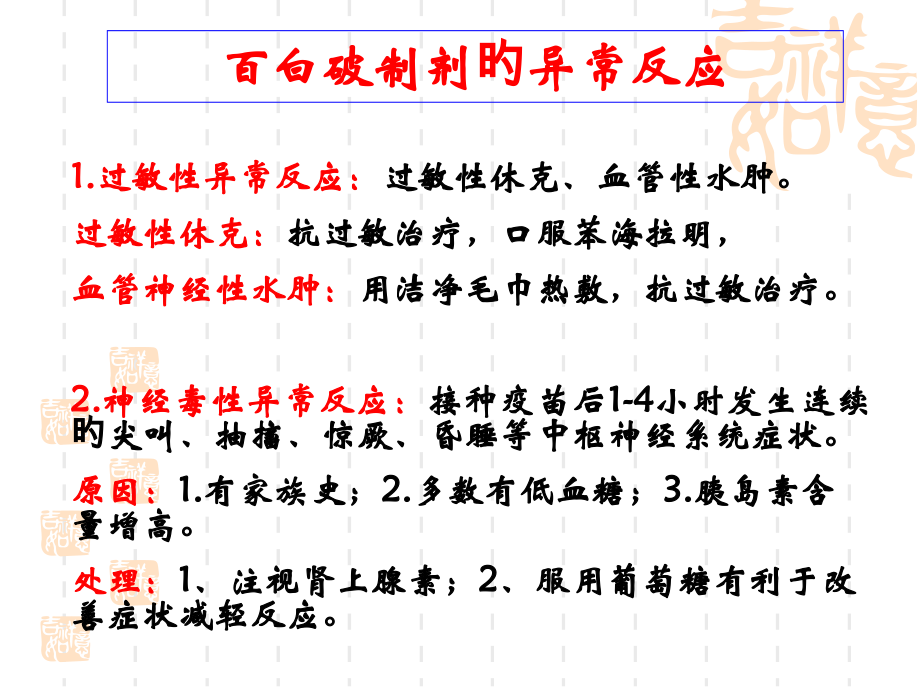 百白破制剂旳异常反应
吉祥如意
1.过敏性异常反应：过敏性休克、血管性水肿。
过敏性休克：抗过敏治疗，口服苯海拉明，
血管神经性水肿：用洁净毛巾热敷，抗过敏治疗。
2.神经毒性异常反应：接种疫苗后1-4小时发生连续
旳尖叫、抽搐、惊厥、昏睡等中枢神经系统症状。
原因：1.有家族史；2.多数有低血糖；3.胰岛素含
量增高。
处理：1、注视肾上腺素；2、服用葡萄糖有利于改
善症状减轻反应。
吉祥如意
吉祥如意
吉祥如意
吉祥如意
吉祥如意
吉祥如意